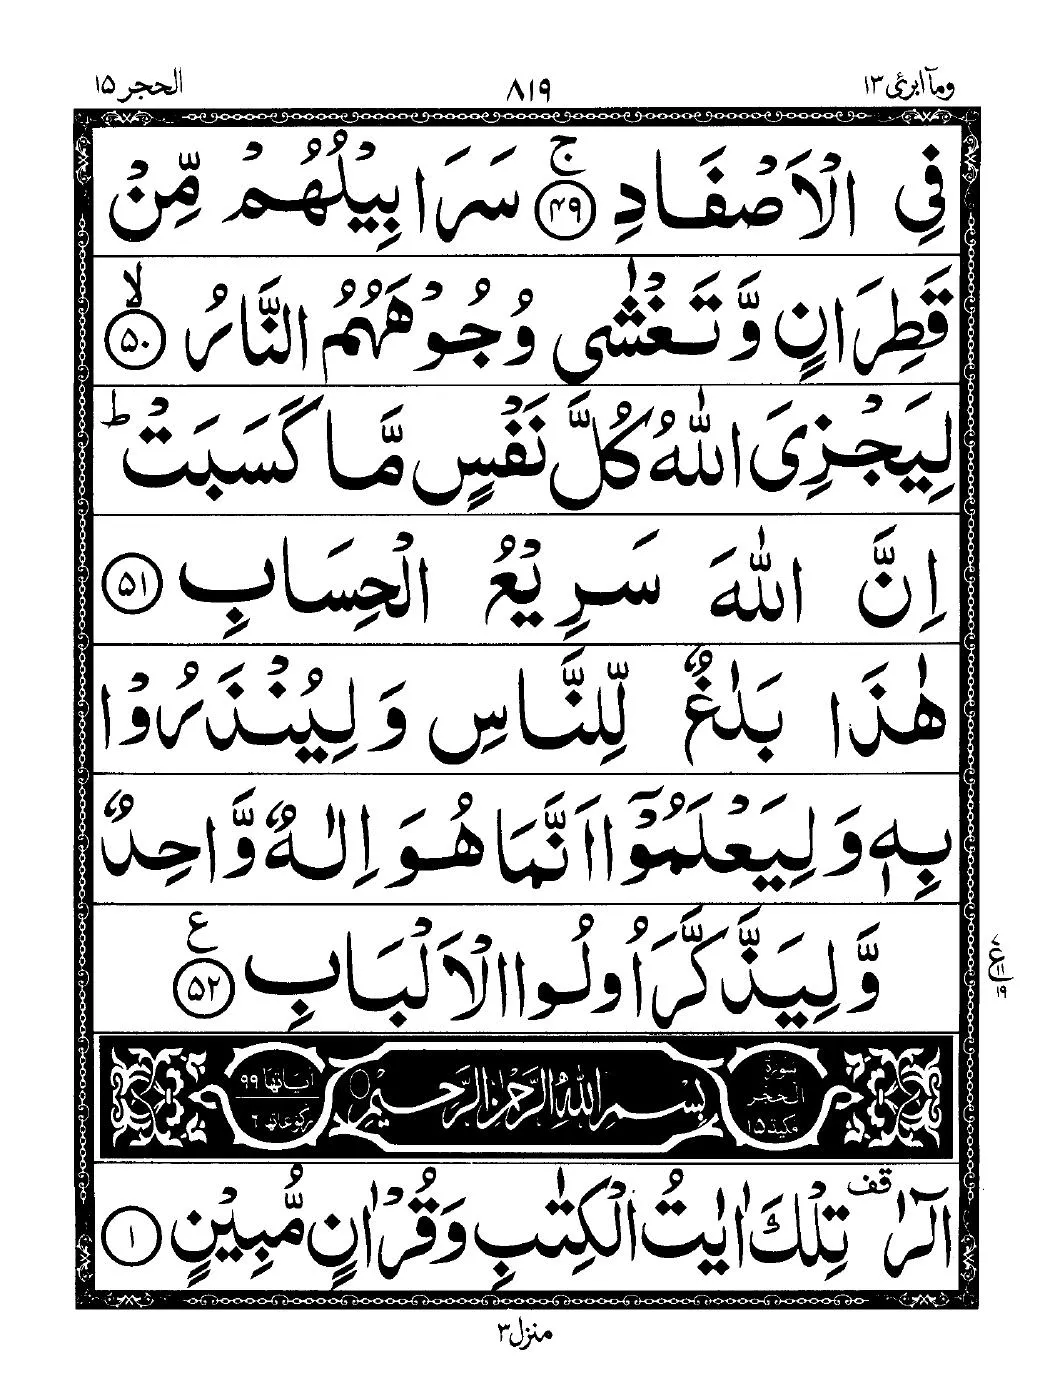 وما ابرئ ١٣
٨١٩
الحجر ١٥
فِي الْاَصْفَادِ ۚ ﴿٤٩﴾ سَرَابِيْلُهُمْ مِّنْ
قَطِرَانٍ وَّتَغْشٰى وُجُوْهَهُمُ النَّارُ ۙ ﴿٥٠﴾
لِيَجْزِىَ اللّٰهُ كُلَّ نَفْسٍ مَّا كَسَبَتْ ؕ
اِنَّ اللّٰهَ سَرِيْعُ الْحِسَابِ ﴿٥١﴾
هٰذَا بَلٰغٌ لِّلنَّاسِ وَلِيُنْذَرُوْا
بِهٖ وَلِيَعْلَمُوْۤا اَنَّمَا هُوَ اِلٰهٌ وَّاحِدٌ
وَّلِيَذَّكَّرَ اُولُوا الْاَلْبَابِ ﴿٥٢﴾ ع
ع
١١
١٩
سورة الحجر مكية ١٥
بسم الله الرحمن الرحيم
اياتها ٩٩
ركوعاتها ٦
الٓرٰ قف تِلْكَ اٰيٰتُ الْكِتٰبِ وَقُرْاٰنٍ مُّبِيْنٍ ﴿١﴾
منزل ٣